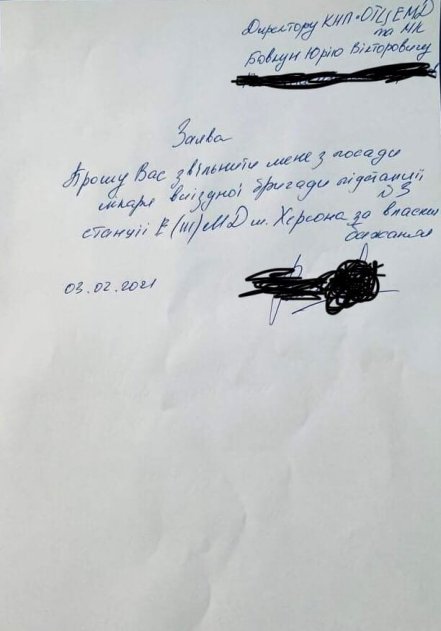 Директору КНП «ОТЦЕМД
та МК
Бовкун Юрію Вікторовичу
Заява
Прошу Вас звільнити мене з посади
лікаря виїзної бригади підстанції
№3
станції Е(Ш)МД м. Херсона за власним
бажанням
03.02.2021